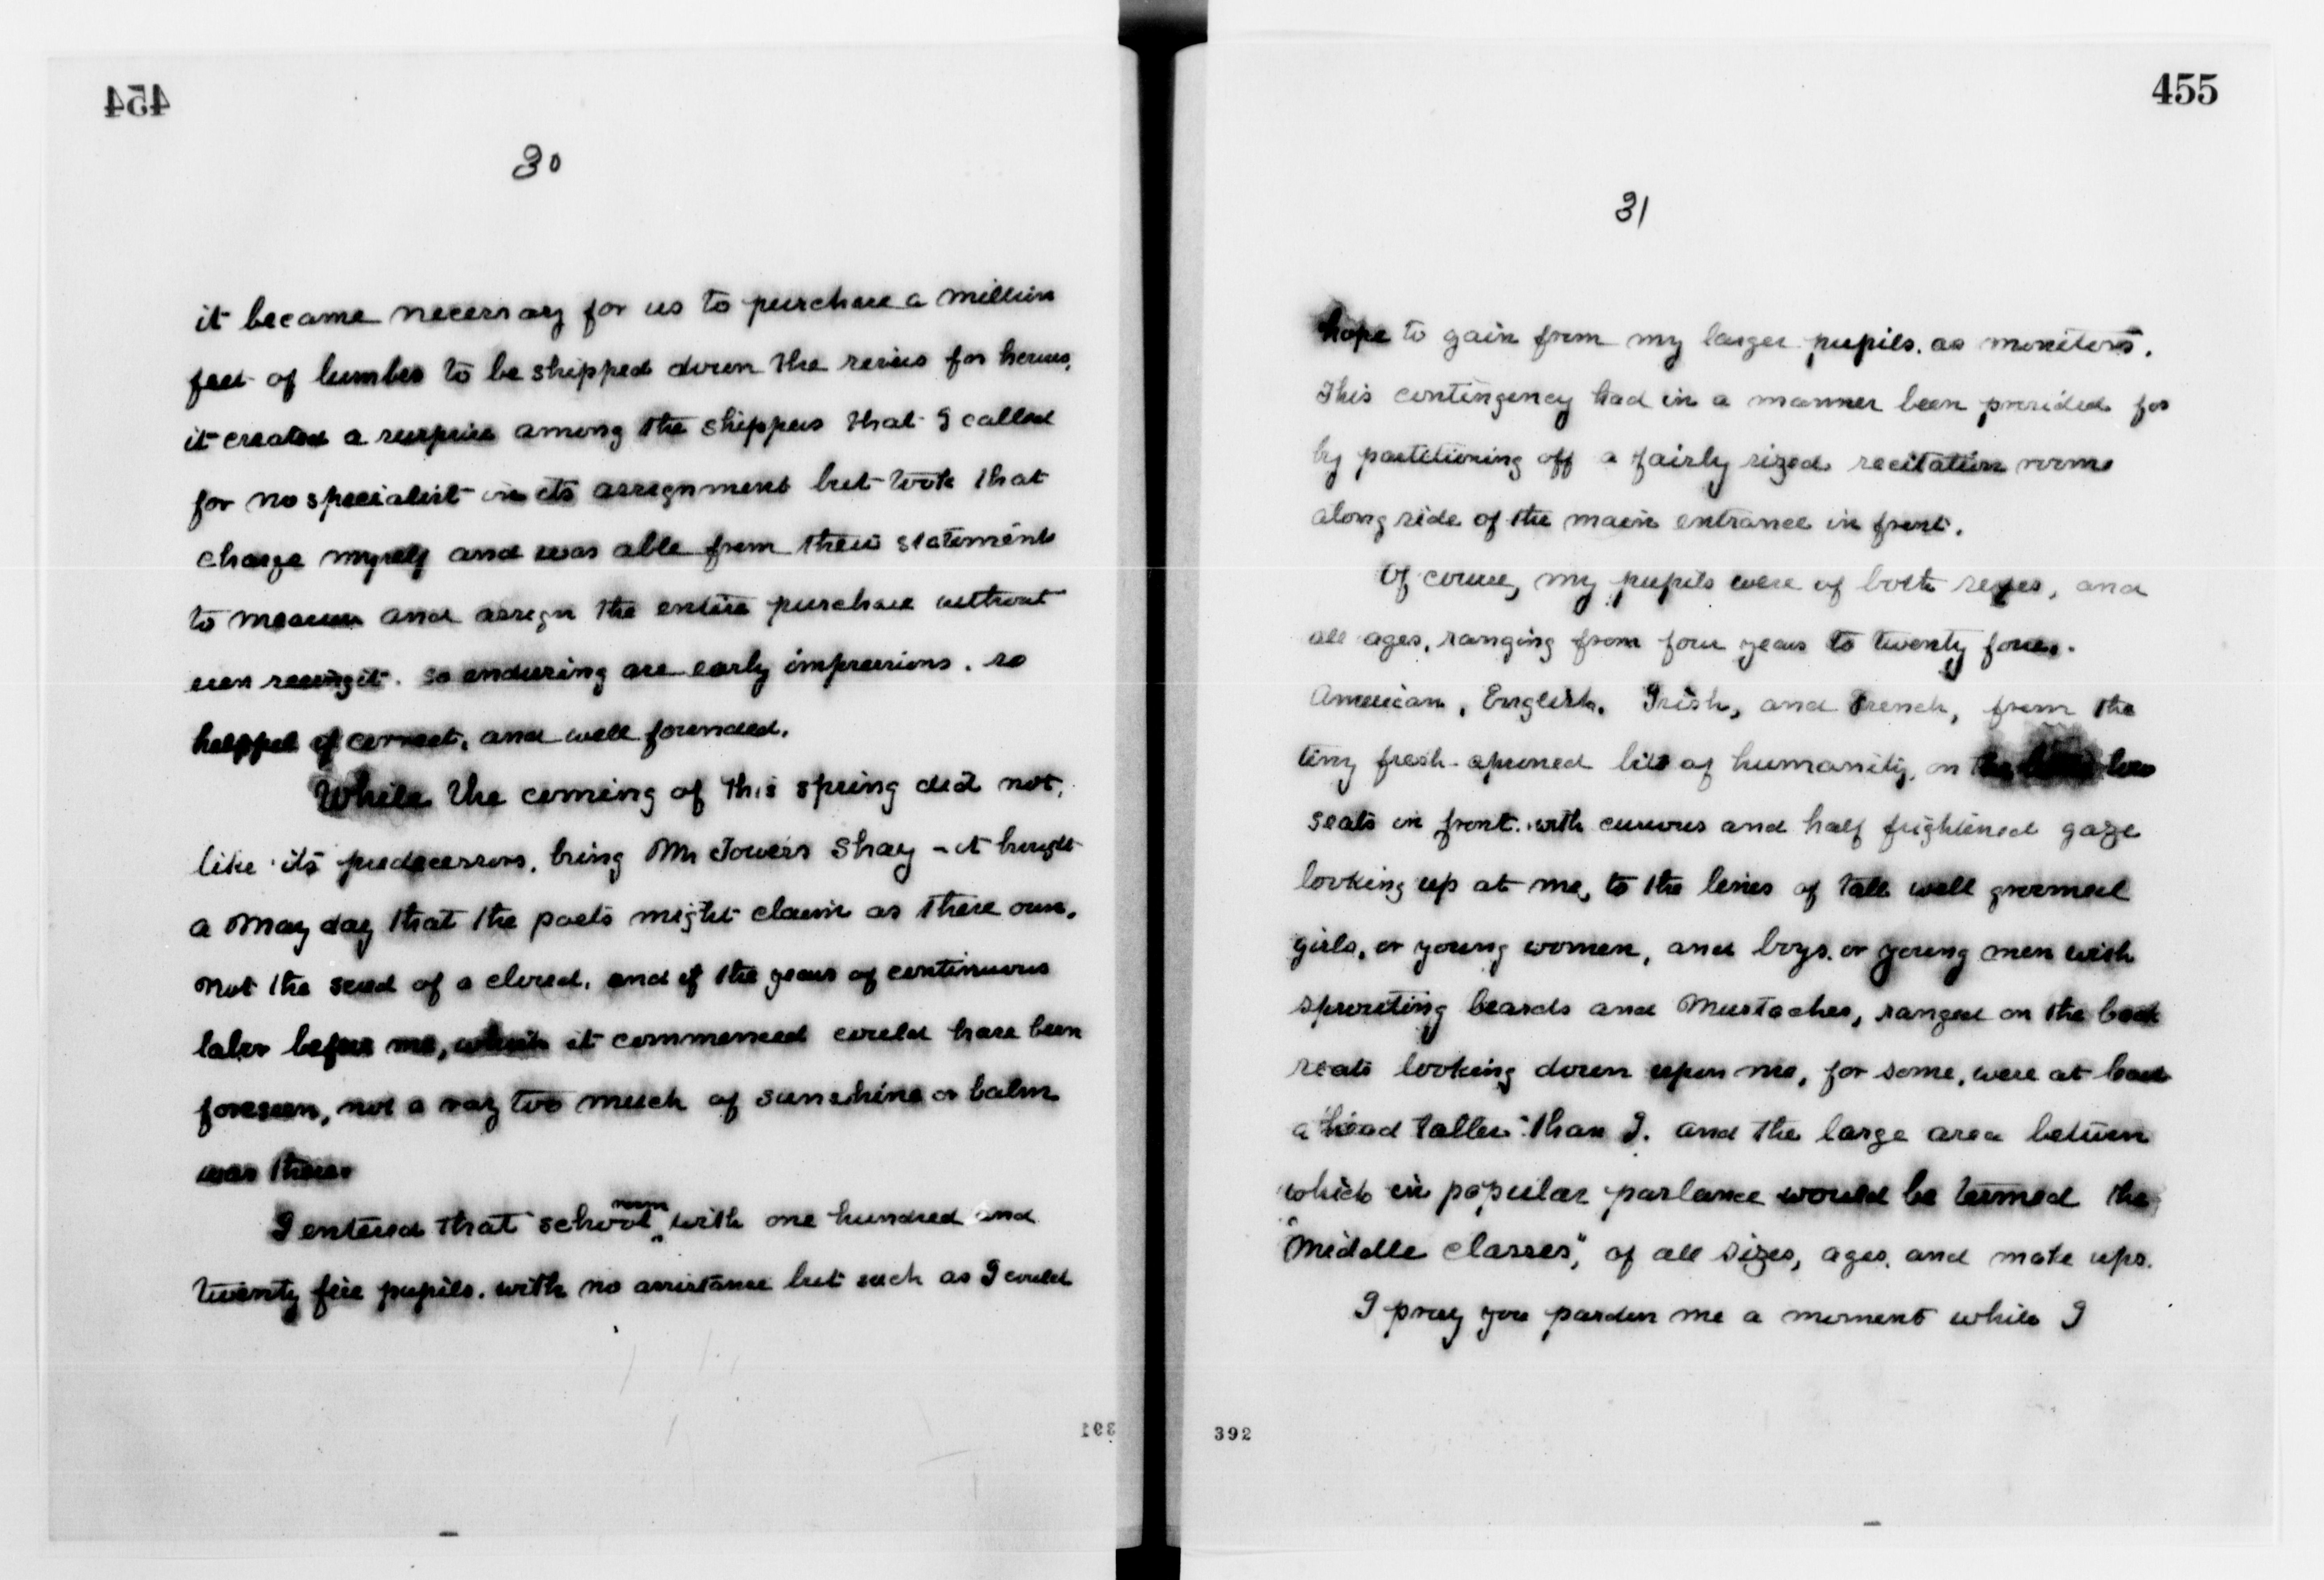 454
30
it became necessary for us to purchase a million
feet of lumber to be shipped down the rivers for homes,
it created a surprise among the shippers that I called
for no specialist in its assignment but took that
charge myself and was able from their statements
to measure and assign the entire purchase without
even seeing it. so enduring are early impressions. so
helpful if correct, and well founded.
While the coming of this spring did not,
like its predecessors, bring Mr Towers Shay - it brought
a May day that the poets might claim as there own.
Not the scud of a cloud, and if the years of continuous
labor before me, which it commenced could have been
foreseen, not a ray too much of sunshine or balm
was there.
I entered that school room with one hundred and
twenty five pupils. with no assistance but such as I could
391
455
31
hope to gain from my larger pupils. as monitors.
This contingency had in a manner been provided for
by partitioning off a fairly sized recitation room
along side of the main entrance in front.
Of course, my pupils were of both sexes, and
all ages, ranging from four years to twenty four.
American, English, Irish, and French, from the
tiny fresh-aproned bits of humanity, on the low
seats in front. with curious and half frightened gaze
looking up at me, to the lines of tall well groomed
girls, or young women, and boys. or young men with
sprouting beards and Mustaches, ranged on the back
seats looking down upon me, for some, were at least
a "head taller" than I. and the large area between
which in popular parlance would be termed the
"Middle classes", of all sizes, ages, and make ups.
I pray you pardon me a moment while I
392